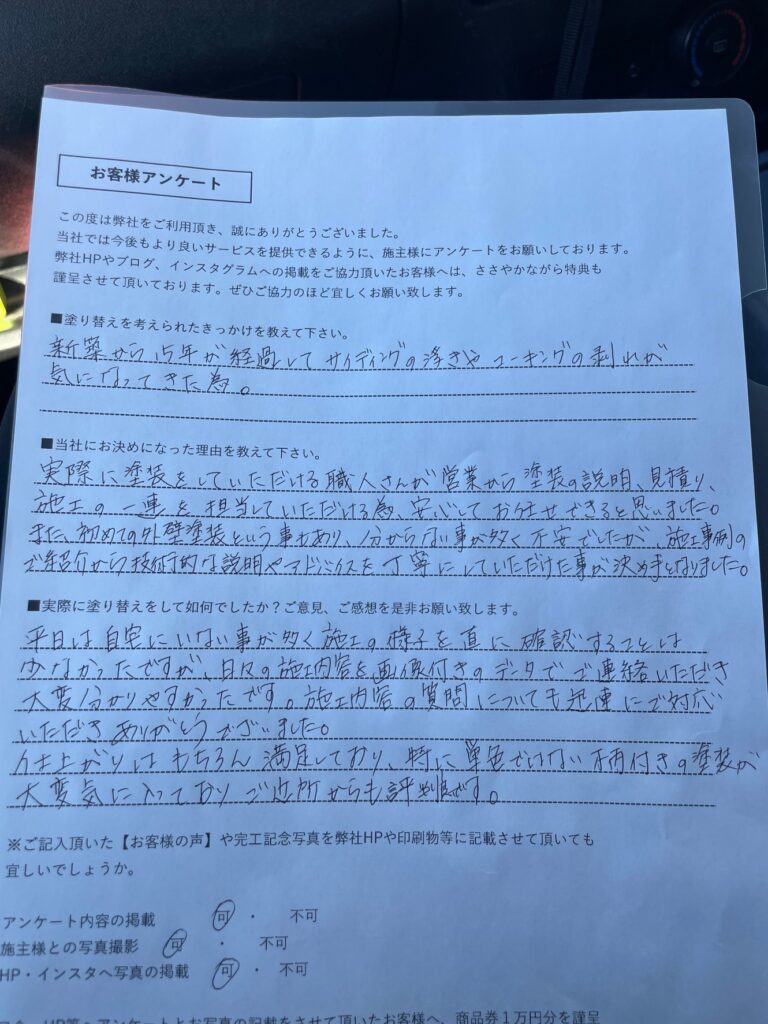 お客様アンケート
この度は弊社をご利用頂き、誠にありがとうございました。
当社では今後もより良いサービスを提供できるように、施主様にアンケートをお願いしております。
弊社HPやブログ、インスタグラムへの掲載をご協力頂いたお客様へは、ささやかながら特典も
謹呈させて頂いております。ぜひご協力のほど宜しくお願い致します。
■塗り替えを考えられたきっかけを教えて下さい。
新築から15年が経過してサイディングの浮きやコーキングの剥れが
気になってきた為。
■当社にお決めになった理由を教えて下さい。
実際に塗装をしていただける職人さんが営業から塗装の説明、見積り、
施工の一連を担当していただける為、安心してお任せできると思いました。
また、初めての外壁塗装という事もあり、分からない事が多く不安でしたが、施工事例の
ご紹介から技術的な説明やアドバイスを丁寧にしていただけた事が決め手となりました。
■実際に塗り替えをして如何でしたか？ご意見、ご感想を是非お願い致します。
平日は自宅にいない事が多く施工の様子を直に確認することは
少なかったですが、日々の施工内容を画像付きのデータでご連絡いただき
大変分かりやすかったです。施工内容の質問についても迅速にご対応
いただきありがとうございました。
仕上がりはもちろん満足しており、特に単色ではない柄付きの塗装が
大変気に入っておりご近所からも評判です。
※ご記入頂いた【お客様の声】や完工記念写真を弊社HPや印刷物等に記載させて頂いても
宜しいでしょうか。
アンケート内容の掲載 可 ・ 不可
施主様との写真撮影 可 ・ 不可
HP・インスタへ写真の掲載 可 ・ 不可
HP等へアンケートとお写真の記載をさせて頂いたお客様へ、商品券１万円分を謹呈